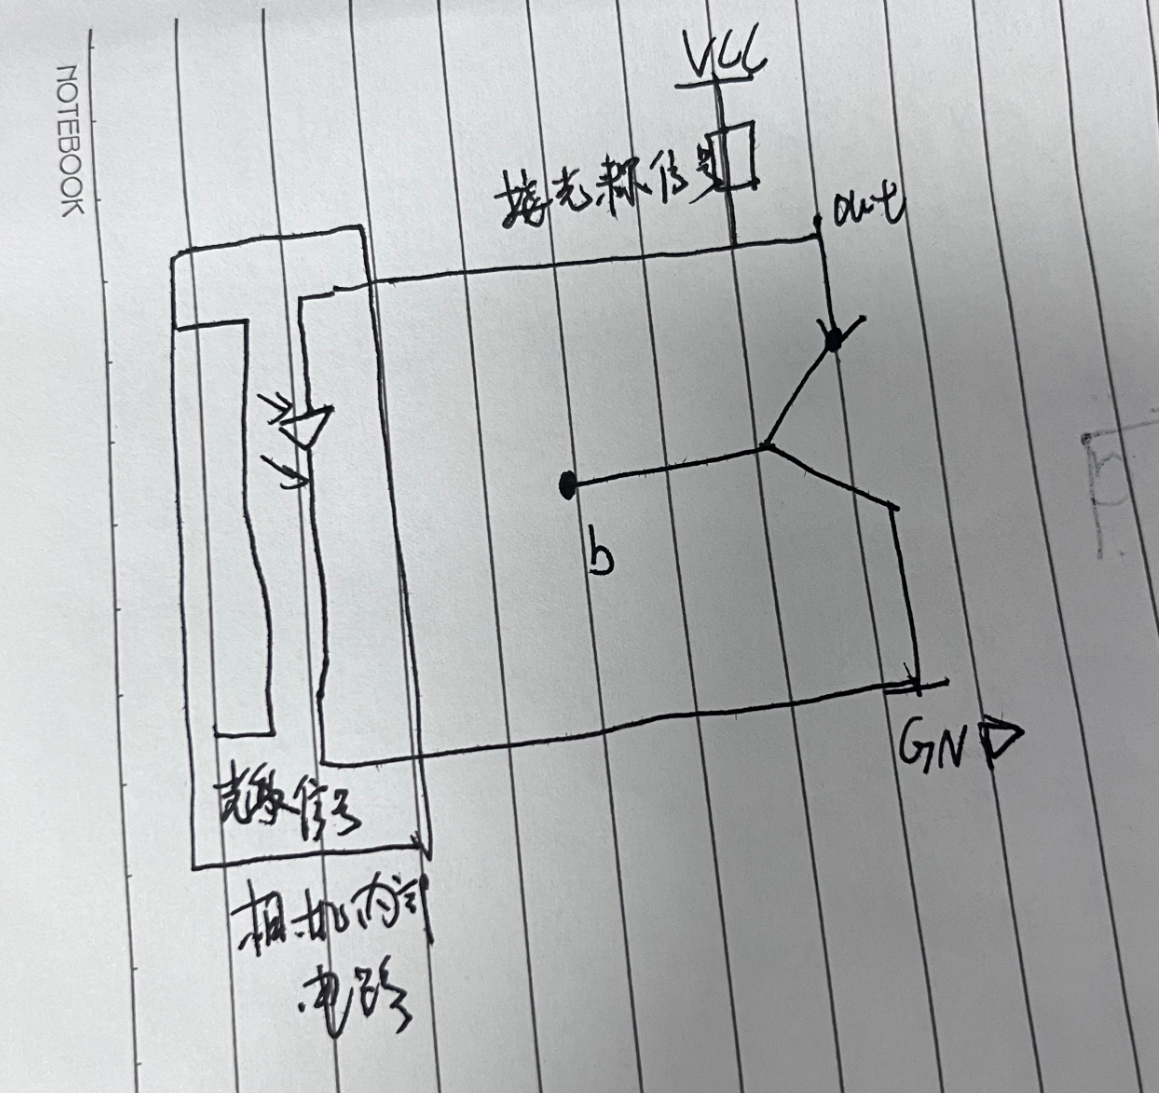 NOTEBOOK
VCC
接光耦信号
out
b
GND
光耦信号
相机内部
电路